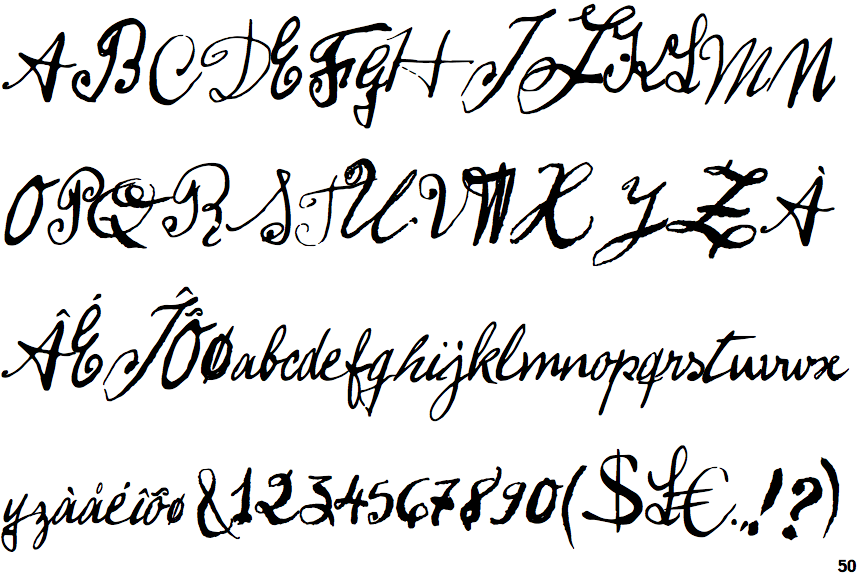 ABCDEFGHIJKLMN
OPQRSTUVWXYZÀ
ÂÉÎÔØabcdefghijklmnopqrstuvwx
yzàåéîõø&1234567890($£€.,!?)
50